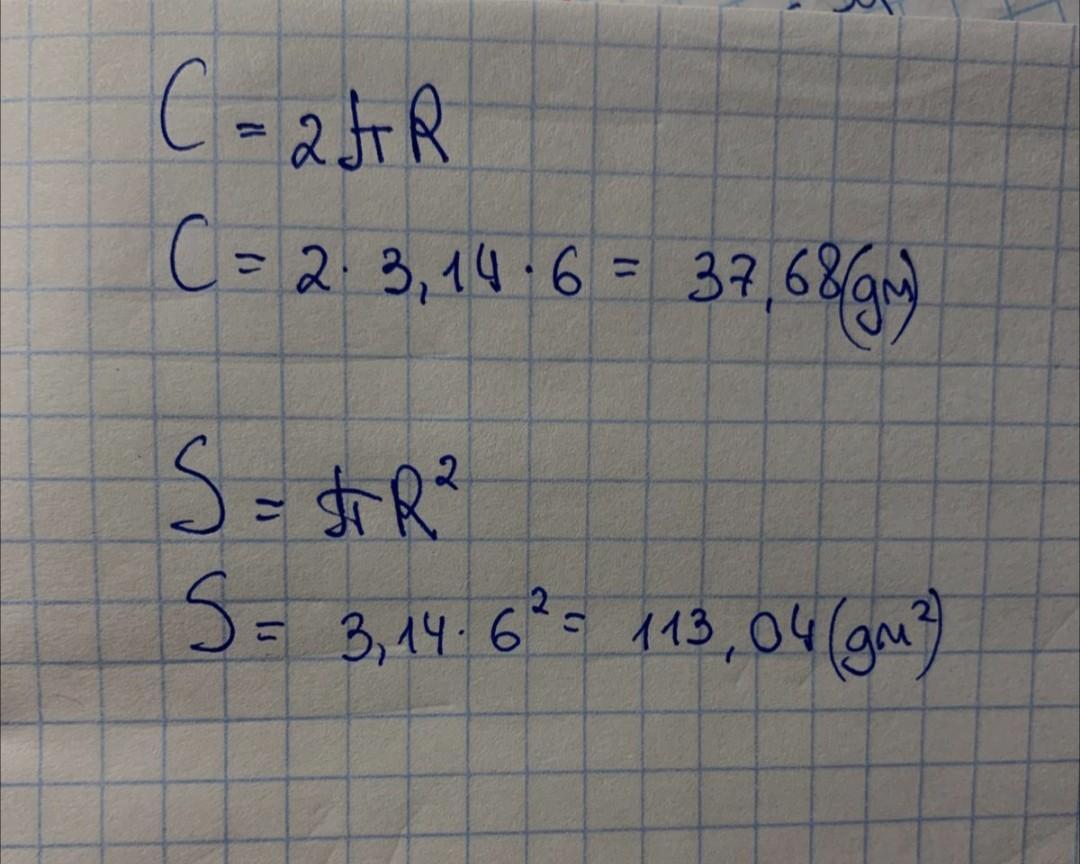 C = 2πR
C = 2 · 3,14 · 6 = 37,68(дм)
S = πR²
S = 3,14 · 6² = 113,04(дм²)